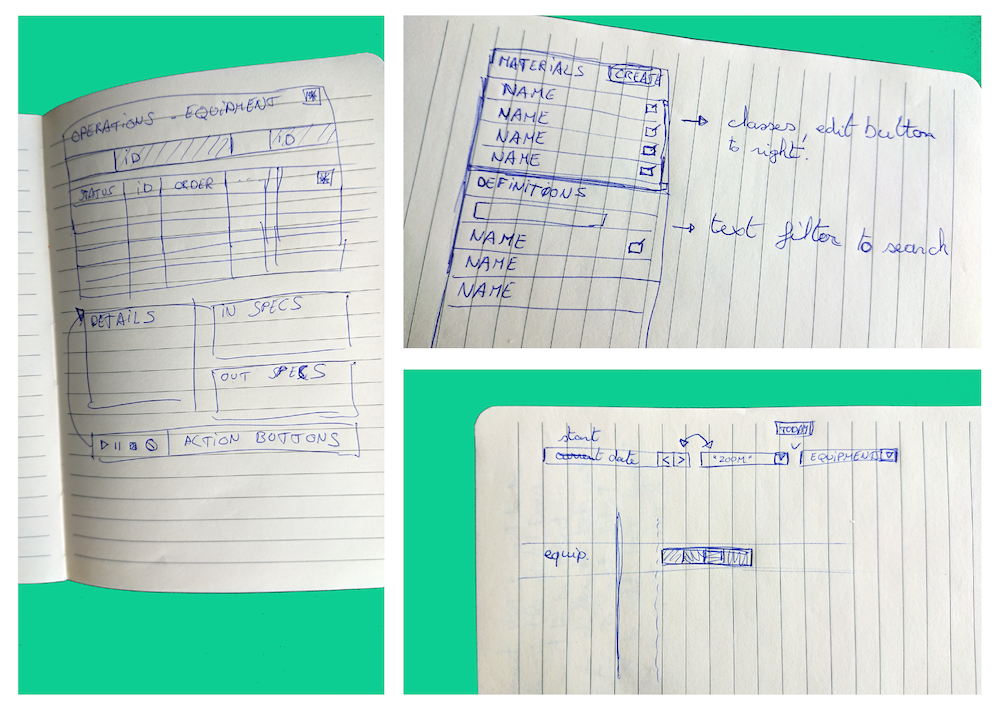 OPERATIONS - EQUIPMENT
ID ID
STATUS ID ORDER ...
DETAILS
IN SPECS
OUT SPECS
ACTION BUTTONS
MATERIALS CREATE
NAME
NAME
NAME
NAME
DEFINITIONS
NAME
NAME
NAME
→ classes, edit button
to right.
→ text filter to search
TODAY
start
current date < > "ZOOM" EQUIPMENT
equip.